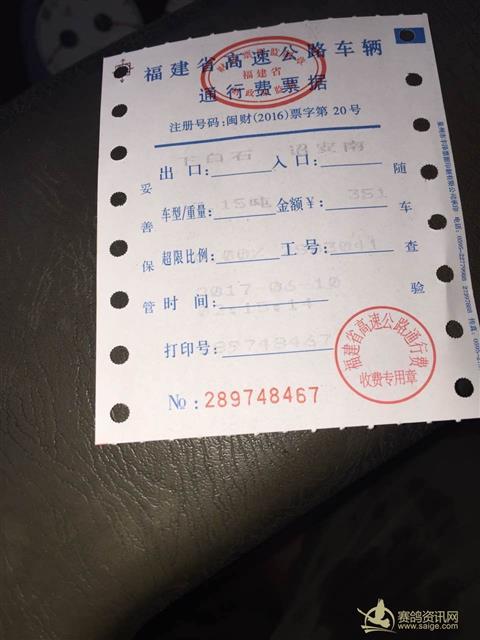 福建省高速公路车辆
通行费票据
福建省
注册号码:闽财(2016)票字第20号
下白石
出口: 入口:
15吨 351
车型/重量: 金额¥:
3041
超限比例: 工号:
2017-06-10
时间:
89748467
打印号:
No: 289748467
妥善保管
随车查验
福建省高速公路通行费
收费专用章
赛鸽资讯网
www.saige.com